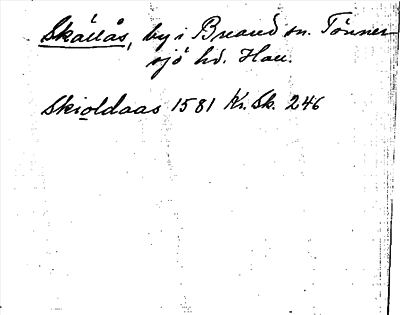 Skällås, by i Breared sn. Tönner-
sjö hd. Hall.
Skioldaas 1581 Kr. Sk. 246